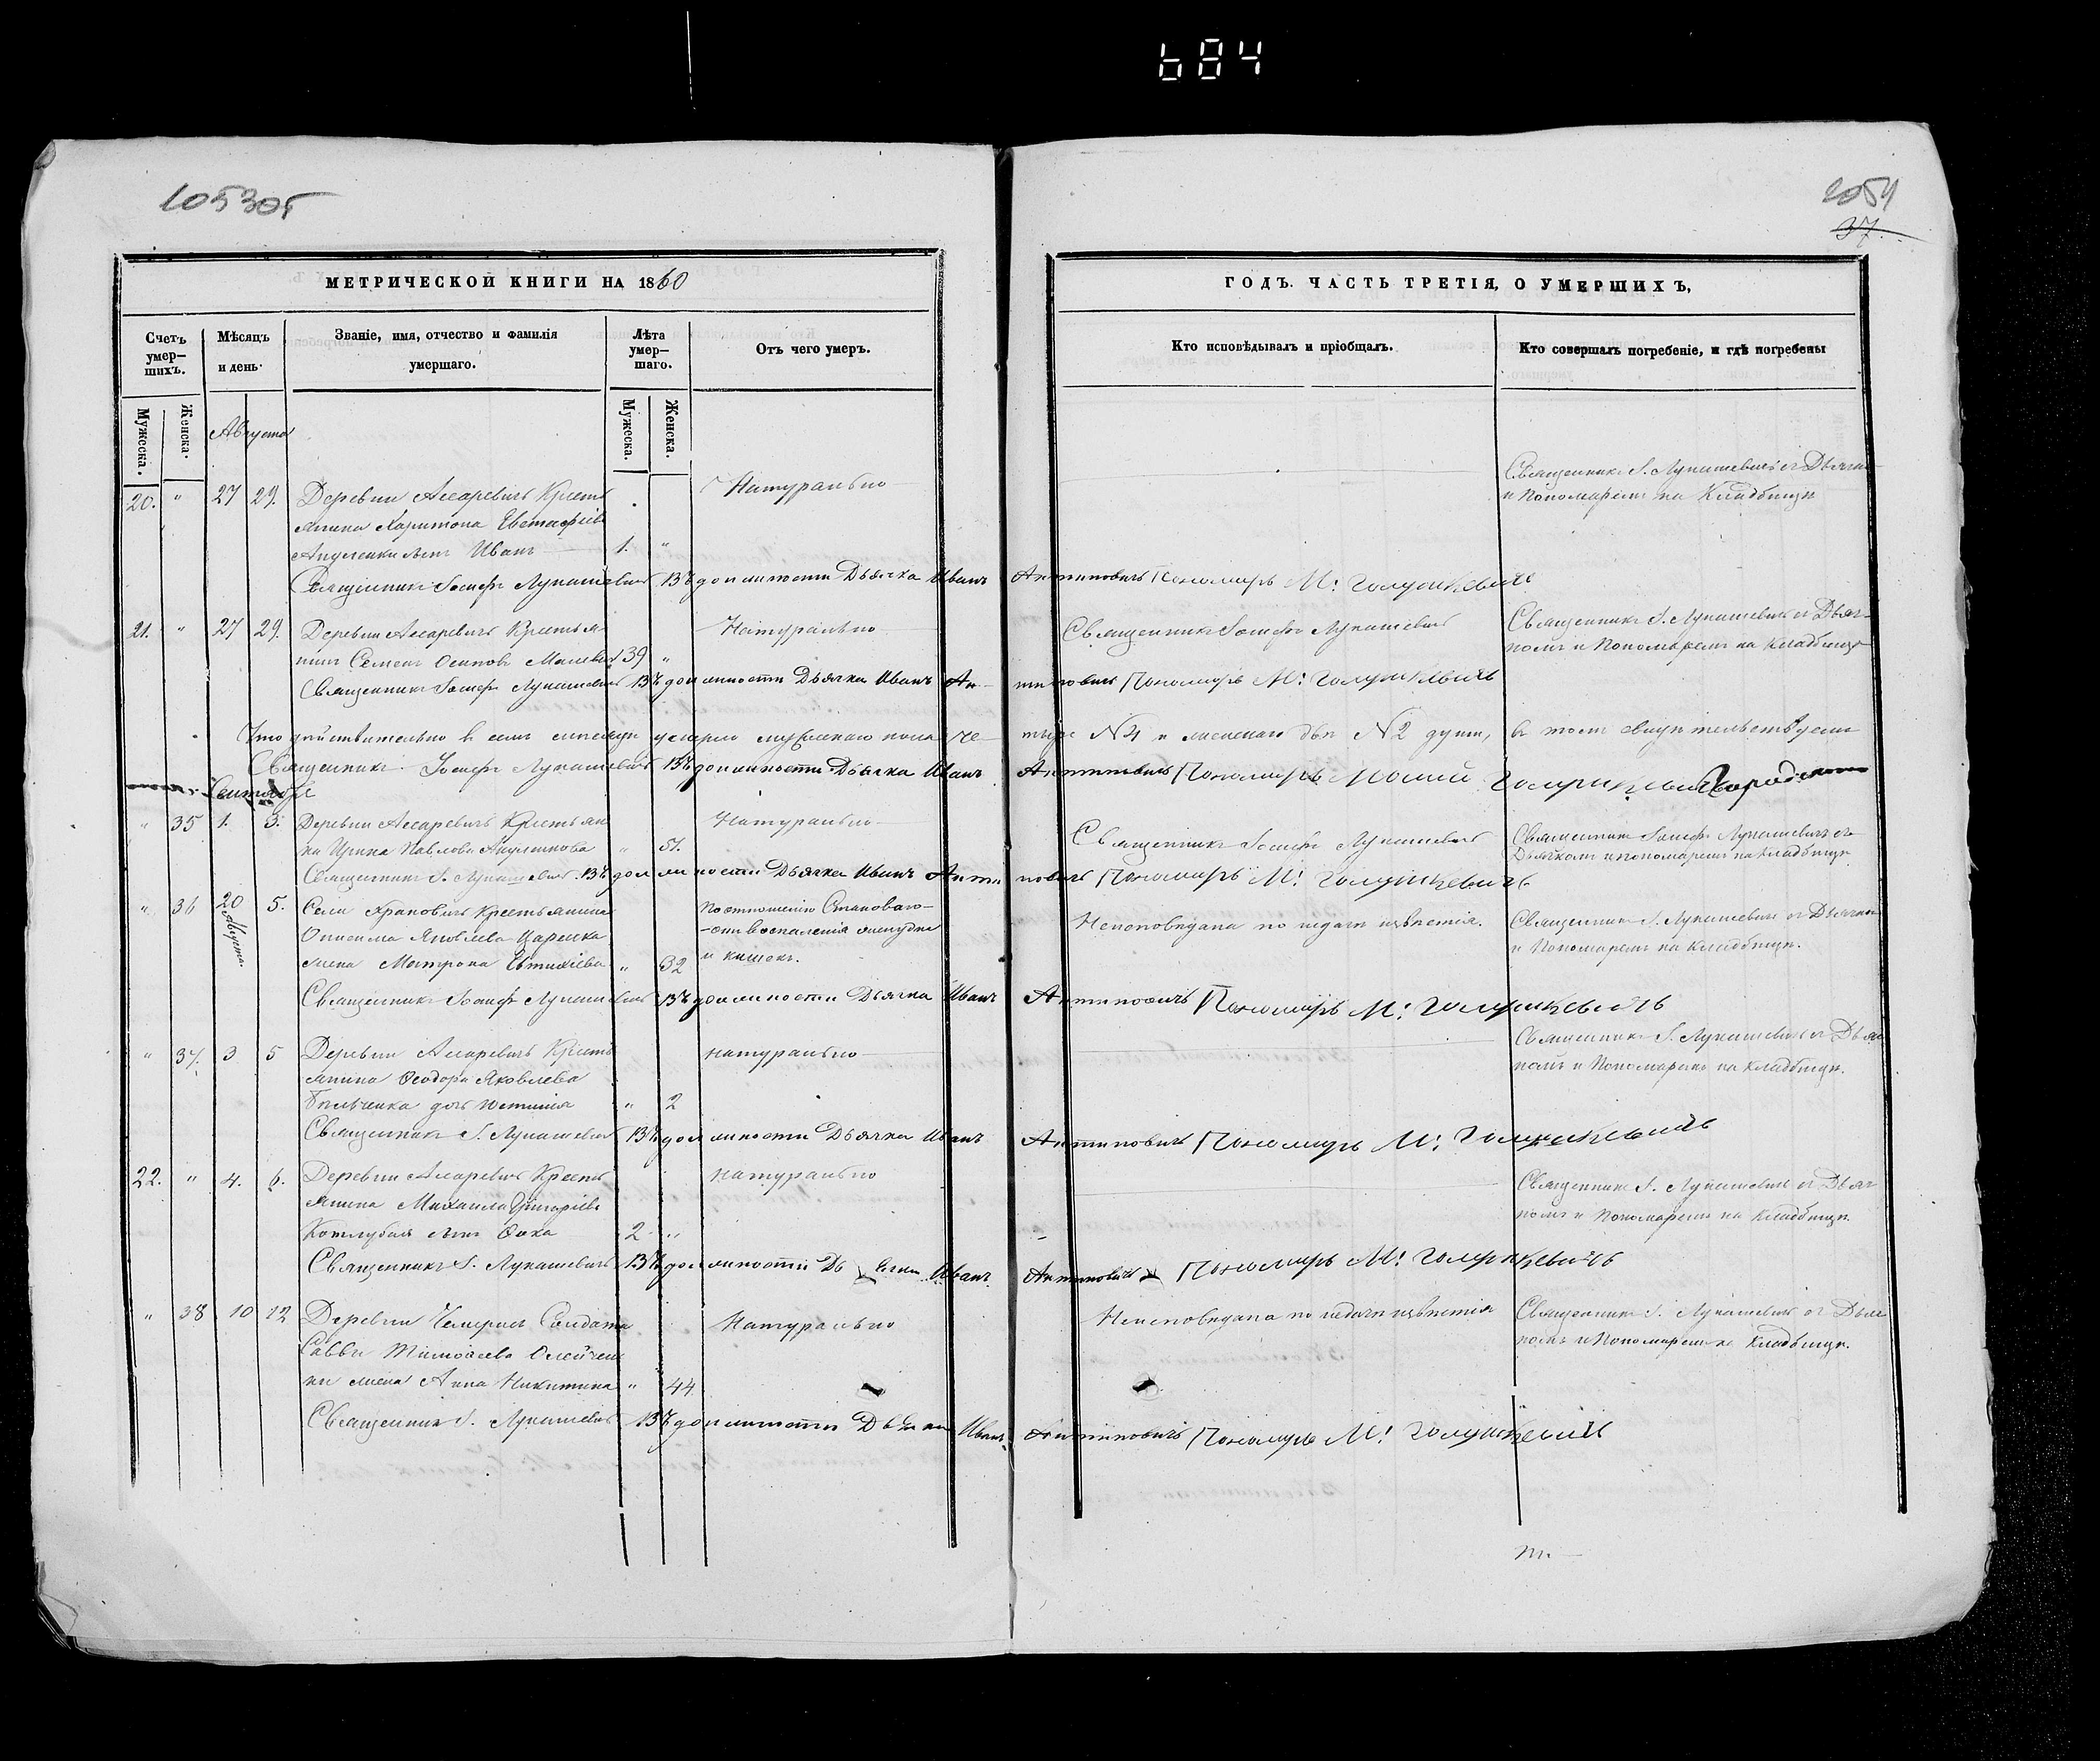 684
105 305
37.
МЕТРИЧЕСКОЙ КНИГИ НА 1860
ГОДЪ. ЧАСТЬ ТРЕТІЯ, О УМЕРШИХЪ,
Счетъ умер—шихъ.
Мѣсяцъ и день.
Званіе, имя, отчество и фамилія умершаго.
Лѣта умер—шаго.
Отъ чего умеръ.
Кто исповѣдывалъ и пріобщалъ.
Кто совершалъ погребеніе, и гдѣ погребены
Мужеска.
Женска.
Мужеска.
Женска.
Августа
20. " 27 29. Деревни Крестья
янина Харитона Евстафіева
сынъ Иванъ 1. "
Натурально
Священникъ І. Лукашевичъ съ
и Пономаремъ на Кладбищѣ
Священникъ Іосифъ Лукашевичъ Въ должности Дьячка Иванъ Антиповичъ Пономарь М: Голушкевичъ
21. " 27 29. Деревни Крестья
нинъ Семенъ Осиповъ 39 "
Натурально
Священникъ Іосифъ Лукашевичъ
Священникъ І. Лукашевичъ съ Дьяч
комъ и Пономаремъ на Кладбищѣ
Священникъ Іосифъ Лукашевичъ Въ должности Дьячка Иванъ Антиповичъ Пономарь М: Голушкевичъ
Что дѣйствительно в семъ мѣсяцѣ умерло мужескаго пола че тыре №4 и женскаго двѣ №2 души, въ томъ свидѣтельствуемъ
Священникъ Іосифъ Лукашевичъ Въ должности Дьячка Иванъ Антиповичъ Пономарь Голушкевичъ
Сентября
" 35 1. 3. Деревни Крестьян
ка Ирина Павлова " 57.
Натурально
Священникъ Іосифъ Лукашевичъ
Священникъ Іосифъ Лукашевичъ съ
Дьячкомъ и пономаремъ на кладбищѣ
Священникъ І. Лукашевичъ Въ должности Дьячка Иванъ Антиповичъ Пономарь М: Голушкевичъ
" 36 20 Августа. 5. Села Храповичъ Крестьянина
Онисима Яковлева Царенка
жена Матрона Евтихіева " 32
По отношенію Становаго
отъ воспаленія желудка
и кишокъ.
Неисповѣдана по недачѣ извѣстія.
Священникъ І. Лукашевичъ съ Дьячкомъ
и Пономаремъ на Кладбищѣ.
Священникъ Іосифъ Лукашевичъ Въ должности Дьячка Иванъ Антиповичъ Пономарь М: Голушкевичъ
" 37. 3 5 Деревни Кресть
янина Ѳеодора Яковлева
дочь Юстинія " 2
натурально
Священникъ І. Лукашевичъ съ Дьяч
комъ и Пономаремъ на Кладбищѣ.
Священникъ І. Лукашевичъ Въ должности Дьячка Иванъ Антиповичъ Пономарь М: Голушкевичъ
22. " 4. 6. Деревни Кресть
янина Михаила Григоріева
Котлубая сынъ Ѳока 2 "
натурально
Священникъ І. Лукашевичъ съ Дьяч
комъ и Пономаремъ на Кладбищѣ.
Священникъ І. Лукашевичъ Въ должности Дьячка Иванъ Антиповичъ Пономарь М: Голушкевичъ
" 38 10 12 Деревни Солдата
Саввы Тимоѳеева Олейчен
ки жена Анна Никитина " 44
Натурально
Неисповѣдана по недачѣ извѣстія
Священникъ І. Лукашевичъ съ Дьяч
комъ и Пономаремъ на Кладбищѣ.
Священникъ І. Лукашевичъ Въ должности Дьячка Иванъ Антиповичъ Пономарь М: Голушкевичъ